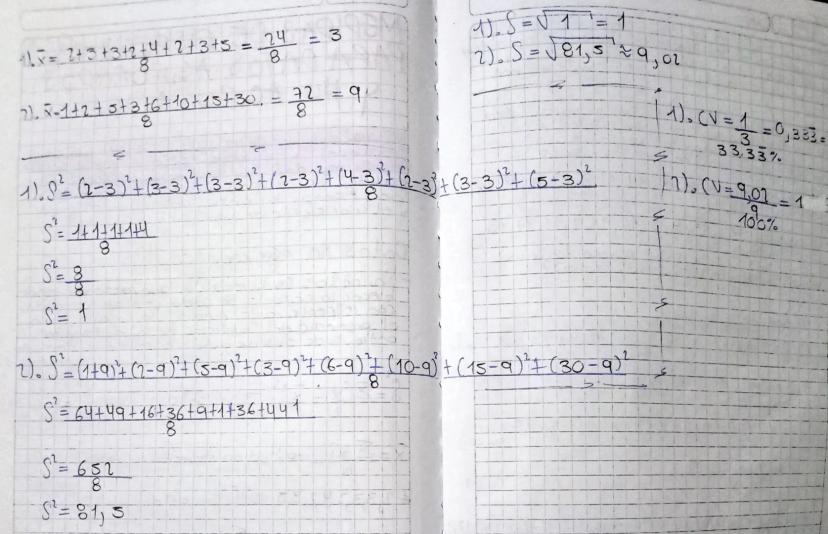 1). x̄ = 2+3+3+2+4+2+3+5 / 8 = 24 / 8 = 3
2). x̄ = 1+2+5+3+6+10+15+30 / 8 = 72 / 8 = 9
1). S² = (2-3)²+(3-3)²+(3-3)²+(2-3)²+(4-3)²+(2-3)²+(3-3)²+(5-3)² / 8
S² = 1+1+1+1+4 / 8
S² = 8 / 8
S² = 1
2). S² = (1+9)²+(2-9)²+(5-9)²+(3-9)²+(6-9)²+(10-9)²+(15-9)²+(30-9)² / 8
S² = 64+49+16+36+9+1+36+441 / 8
S² = 652 / 8
S² = 81,5
1). S = √1 = 1
2). S = √81,5 ≈ 9,02
1). CV = 1 / 3 = 0,333 =
33,33%
2). CV = 9,02 / 9 = 1
100%